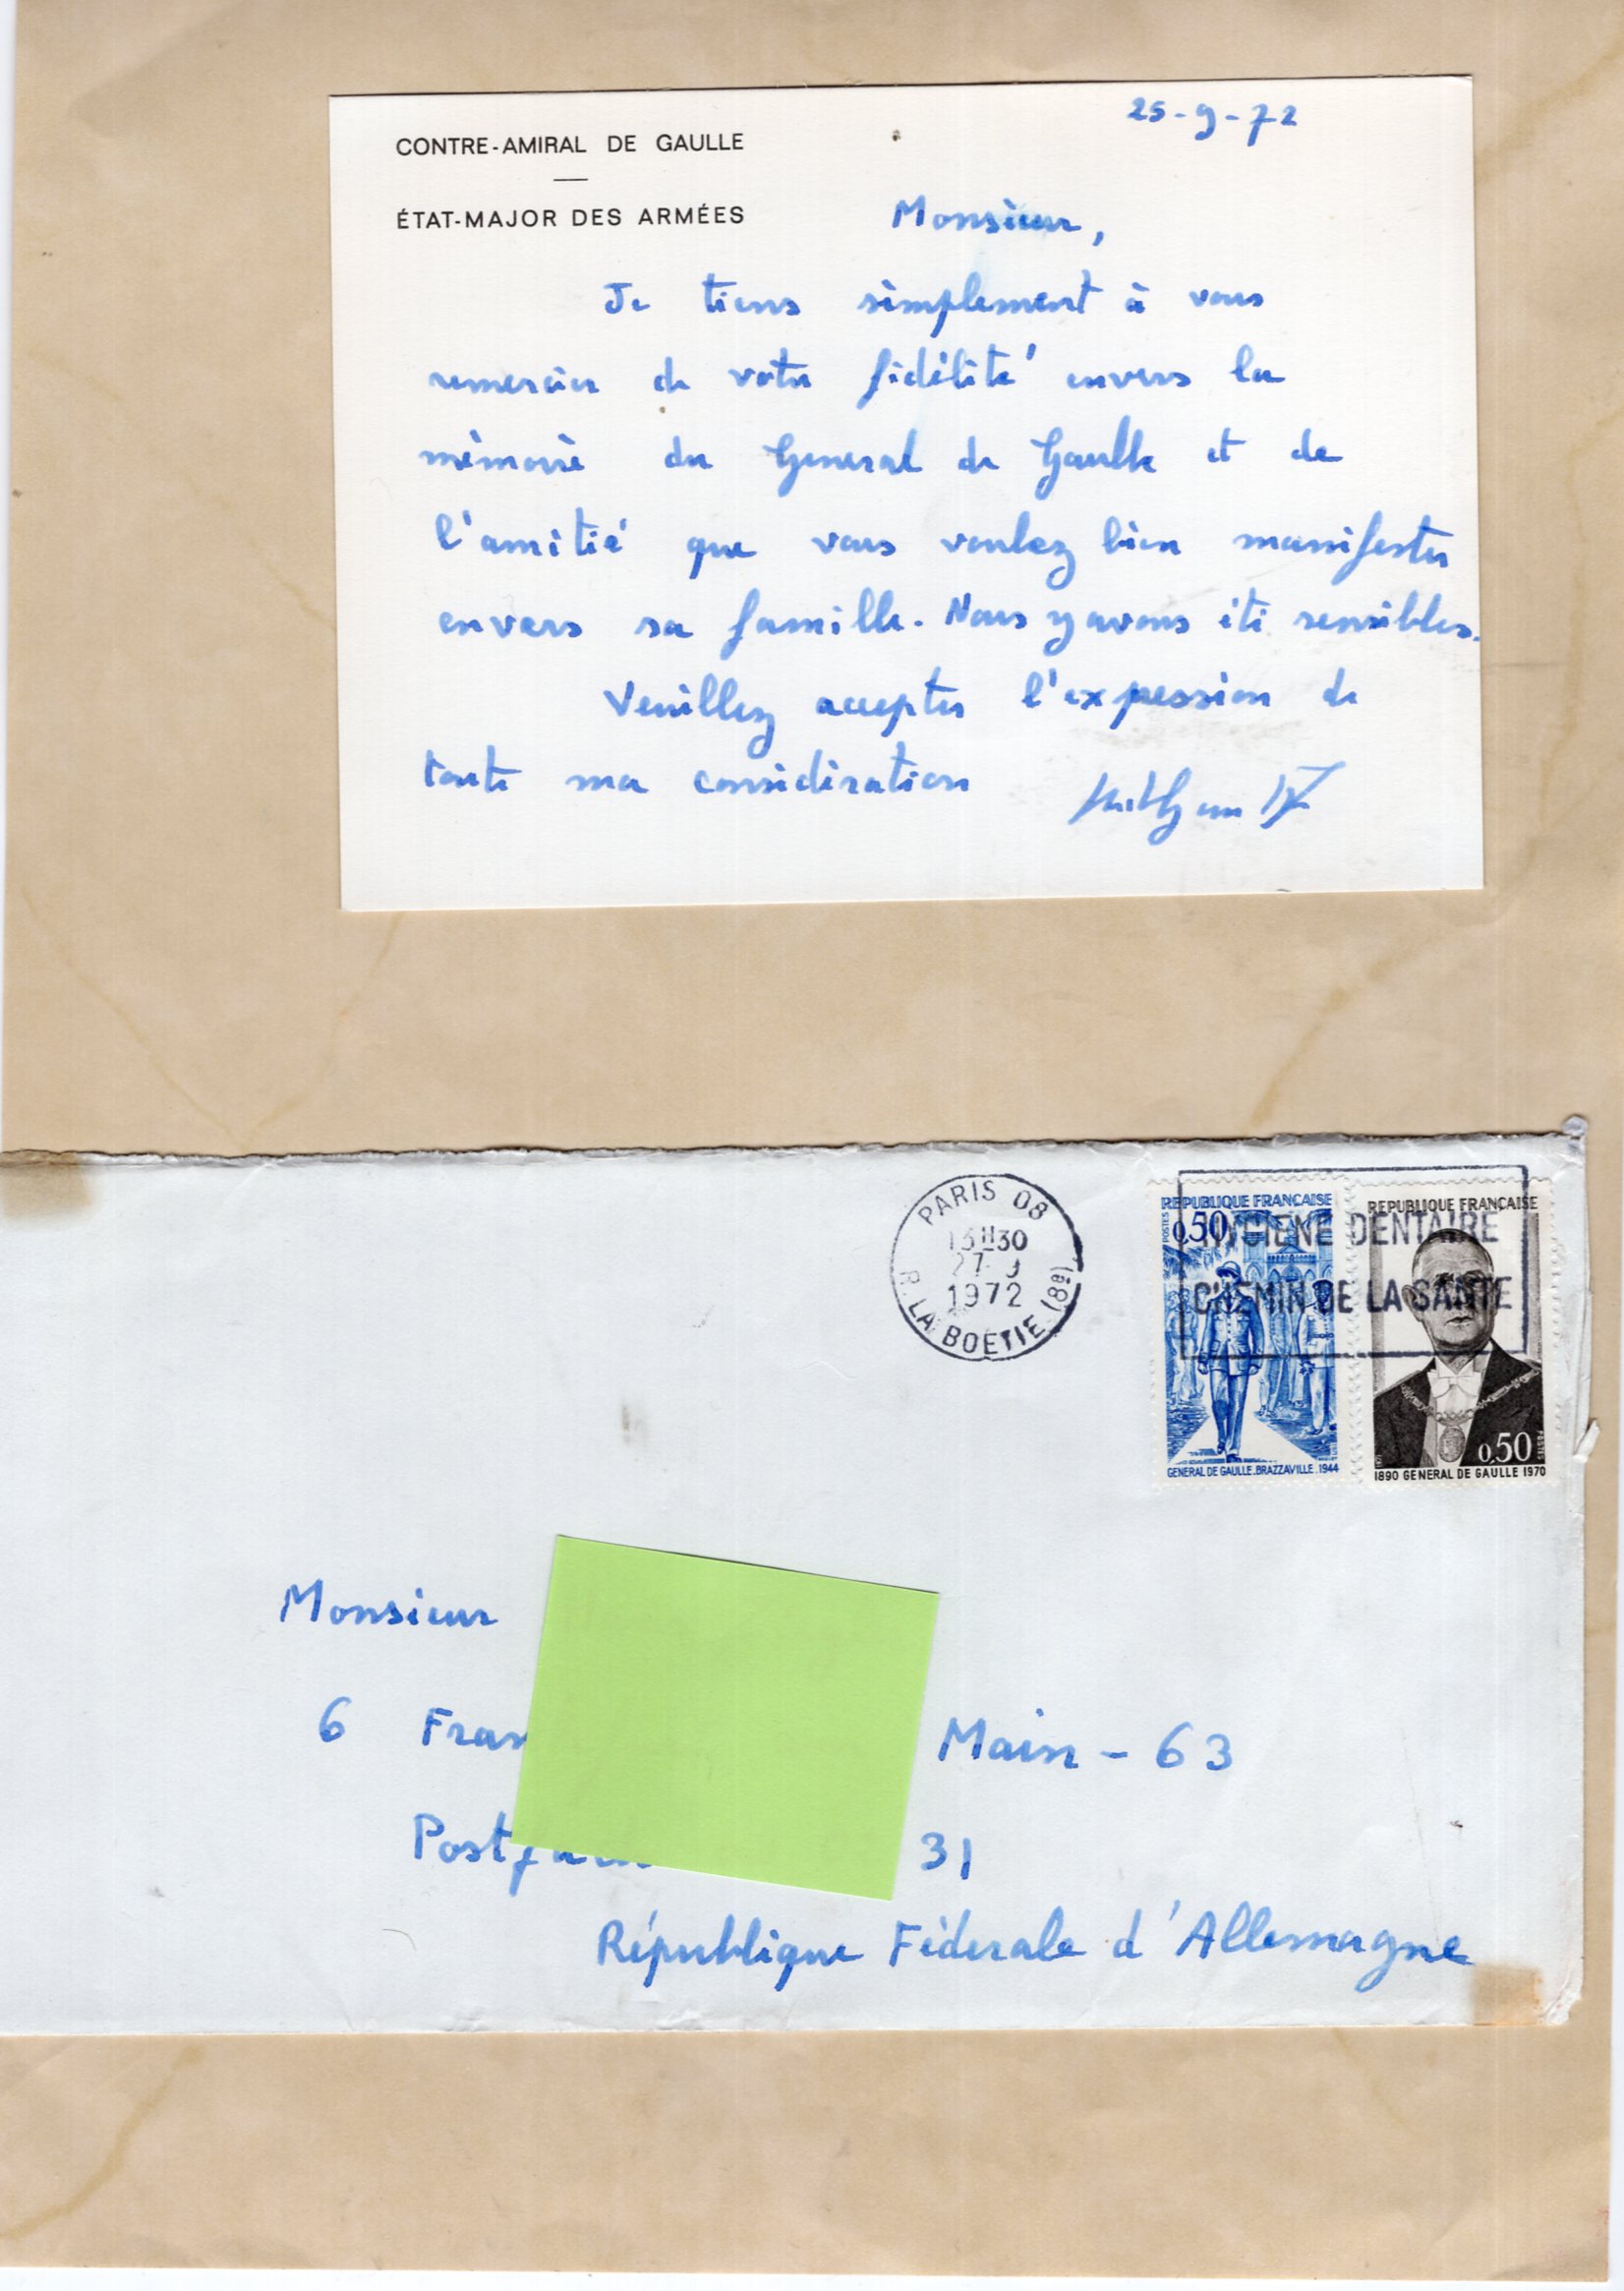 25-9-72
CONTRE-AMIRAL DE GAULLE
ÉTAT-MAJOR DES ARMÉES
Monsieur,
Je tiens simplement à vous
remercier de votre fidélité envers la
mémoire du Général de Gaulle et de
l'amitié que vous voulez bien manifester
envers sa famille. Nous y avons été sensibles.
Veuillez accepter l'expression de
toute ma considération
PARIS 08
13H30
27-9
1972
R. LA BOETIE (8e)
HYGIENE DENTAIRE
CHEMIN DE LA SANTE
REPUBLIQUE FRANÇAISE
POSTES
0,50
GENERAL DE GAULLE. BRAZZAVILLE. 1944
REPUBLIQUE FRANÇAISE
0,50
POSTES
1890 GENERAL DE GAULLE 1970
Monsieur
6 Fran Main - 63
Post 31
République Fédérale d'Allemagne